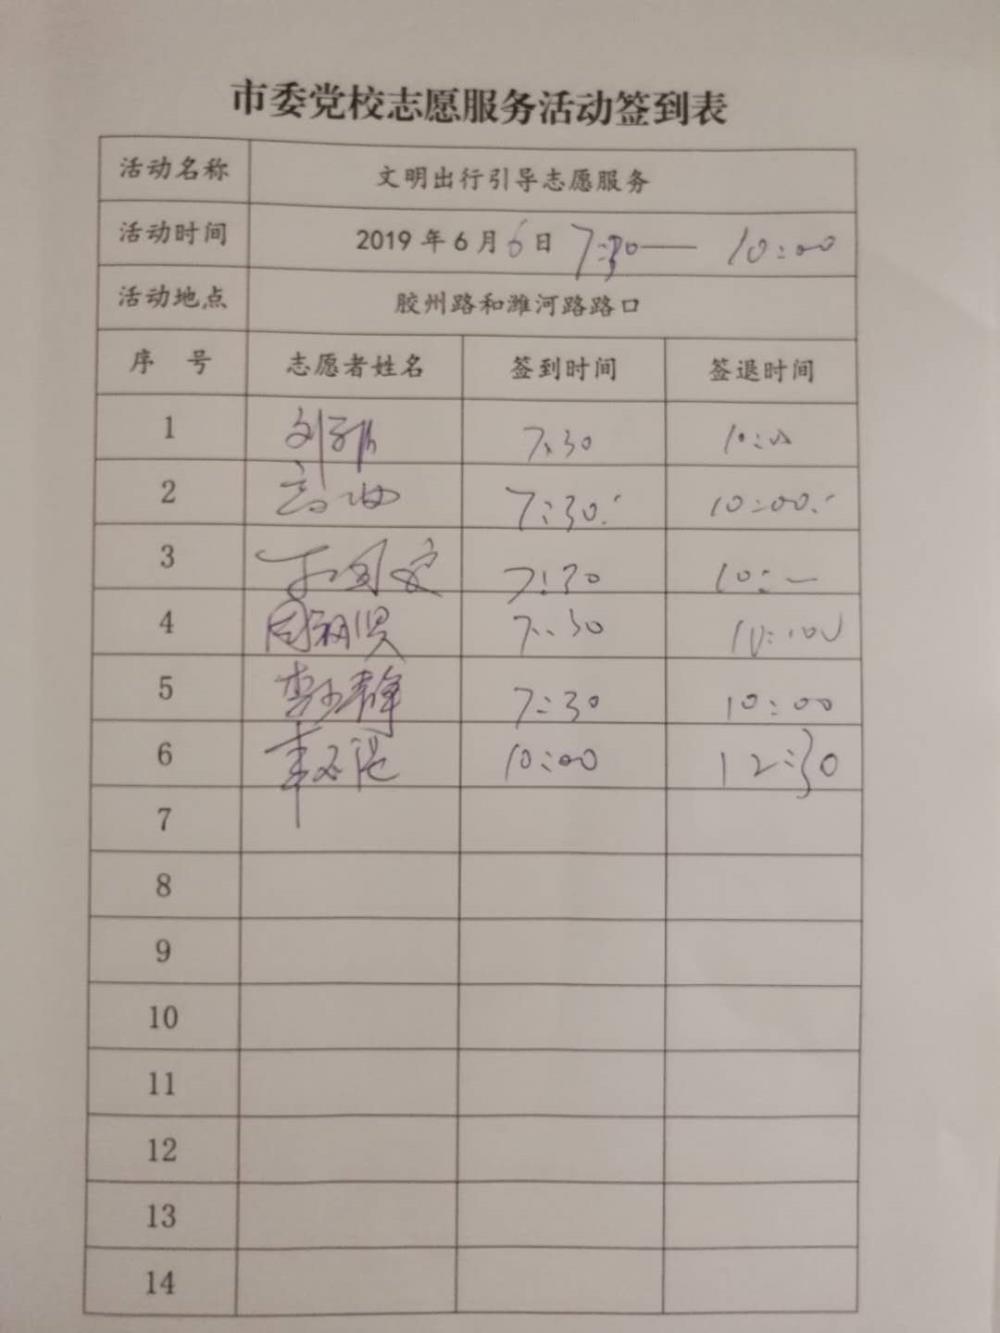 市委党校志愿服务活动签到表
活动名称 文明出行引导志愿服务
活动时间 2019年6月6日 7:30—10:00
活动地点 胶州路和潍河路路口
序 号 志愿者姓名 签到时间 签退时间
1 7:30 10:00
2 7:30 10:00
3 7:30 10:—
4 7:30 10:00
5 7:30 10:00
6 10:00 12:30
7
8
9
10
11
12
13
14